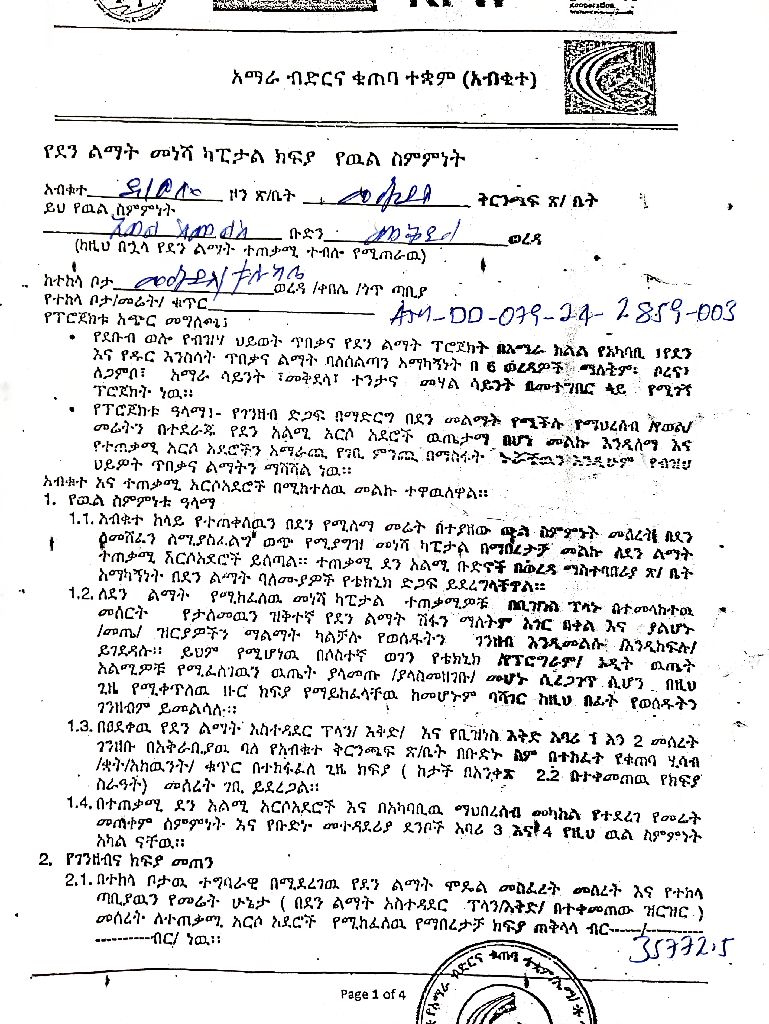 አማራ ብድርና ቁጠባ ተቋም (አብቁተ)
የደን ልማት መነሻ ካፒታል ክፍያ የዉል ስምምነት
አብቁተ ዞን ጽ/ቤት መቅደላ ቅርንጫፍ ጽ/ ቤት
ይህ የዉል ስምምነት
ቡድን መቅደላ ወረዳ
(ከዚህ በኋላ የደን ልማት ተጠቃሚ ተብሎ የሚጠራዉ)
ከተከላ ቦታ መቅደላ ወረዳ /ቀበሌ /ነጥ ጣቢያ
የተከላ ቦታ/መሬት/ ቁጥር AM-DD-079-24-2859-003
የፕሮጀክቱ አጭር መግለጫ፤
• የደቡብ ወሎ የብዝሃ ህይወት ጥበቃና የደን ልማት ፕሮጀክት በአማራ ክልል የአካባቢ ፣የደን
እና የዱር እንስሳት ጥበቃና ልማት ባለስልጣን አማካኝነት በ 6 ወረዳዎች ማለትም፡ ቦረና፣
ለጋምቦ፣ አማራ ሳይንት ፣መቅደላ፣ ተንታና መሃል ሳይንት በመተግበር ላይ የሚገኝ
ፕሮጀክት ነዉ።
• የፕሮጀክቱ ዓላማ፡- የገንዘብ ድጋፍ በማድርግ በደን መልማት የሚችሉ የማህረሰብ /የወል/
መሬትን በተደራጁ የደን አልሚ አርሶ አደሮች ዉጤታማ በሆነ መልኩ እንዲለማ እና
የተጠቃሚ አርሶ አደሮችን አማራጪ የገቢ ምንጪ በማስፋት ኑሯቸዉን እንዲሁም የብዝሀ
ህይዎት ጥበቃና ልማትን ማሻሻል ነዉ።
አብቁተ እና ተጠቃሚ አርሶአደሮች በሚከተለዉ መልኩ ተዋዉለዋል።
1. የዉል ስምምነቱ ዓላማ
1.1. አብቁተ ከላይ የተጠቀሰዉን በደን የሚለማ መሬት በተያዘው ውል ስምምነት መሰረት በደን
ለመሸፈን ለሚያስፈልግ ወጭ የሚያግዝ መነሻ ካፒታል በማበረታቻ መልኩ ለደን ልማት
ተጠቃሚ አርሶአደሮች ይሰጣል። ተጠቃሚ ደን አልሚ ቡድኖች በወረዳ ማስተባበሪያ ጽ/ ቤት
አማካኝነት በደን ልማት ባለሙያዎች የቴክኒክ ድጋፍ ይደረግላቸዋል።
1.2. ለደን ልማት የሚከፈለዉ መነሻ ካፒታል ተጠቃሚዎቹ በቢዝነስ ፕላኑ በተመላከተዉ
መሰርት የታለመዉን ዝቅተኛ የደን ልማት ሽፋን ማለትም አገር በቀል እና ያልሆኑ
/መጤ/ ዝርያዎችን ማልማት ካልቻሉ የወሰዱትን ገንዘብ እንዲመልሱ /እንዲከፍሉ/
ይገደዳሉ። ይህም የሚሆነዉ በሶስተኛ ወገን የቴክኒክ /የፕሮግራም/ ኦዲት ዉጤት
አልሚዎቹ የሚፈለገዉን ዉጤት ያላመጡ /ያላስመዘገቡ/ መሆኑ ሲረጋገጥ ሲሆን በዚህ
ጊዜ የሚቀጥለዉ ዙር ክፍያ የማይከፈላቸዉ ከመሆኑም ባሻገር ከዚህ በፊት የወሰዱትን
ገንዘብም ይመልሳሉ።
1.3. በፀደቀዉ የደን ልማት አስተዳደር ፕላን/ እቅድ/ እና የቢዝነስ እቅድ አባሪ 1 እን 2 መሰረት
ገንዘቡ በአቅራቢያዉ ባለ የአብቁተ ቅርንጫፍ ጽ/ቤት በቡድኑ ስም በተከፈተ የቁጠባ ሂሳብ
/ቋት/አከዉንት/ ቁጥር በተከፋፈለ ጊዜ ክፍያ ( ከታች በአንቀጽ 2.2 በተቀመጠዉ የክፍያ
ስራዓት) መሰረት ገቢ ይደረጋል።
1.4. በተጠቃሚ ደን አልሚ አርሶአደሮች እና በአካባቢዉ ማህበረሰብ መካከል የተደረገ የመሬት
መጠቀም ስምምነት እና የቡድኑ መተዳደሪያ ደንቦች አባሪ 3 እና 4 የዚህ ዉል ስምምነት
አካል ናቸዉ።
2. የገንዘብና ክፍያ መጠን
2.1. በተከላ ቦታዉ ተግባራዊ በሚደረገዉ የደን ልማት ሞዴል መስፈረት መሰረት እና የተከላ
ጣቢያዉን የመሬት ሁኔታ ( በደን ልማት አስተዳደር ፕላን/እቅድ/ በተቀመጠው ዝርዝር )
መሰረት ለተጠቃሚ አርሶ አደሮች የሚከፈለዉ የማበረታቻ ክፍያ ጠቅላላ ብር-----/---------
----------ብር/ ነዉ። 35772.5
Page 1 of 4